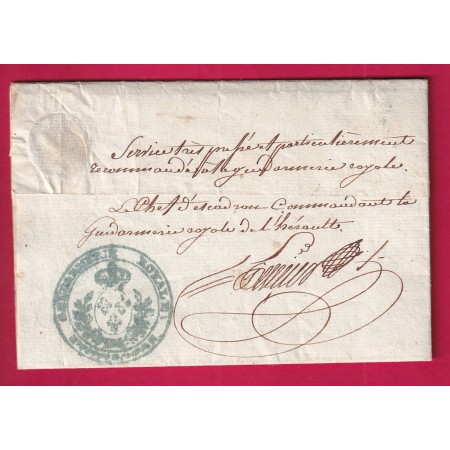 Service très pressé et particulièrement
recommandé à la gendarmerie royale.
Le Chef d'escadron Commandant la
Gendarmerie royale de l'hérault.
GENDARMERIE ROYALE